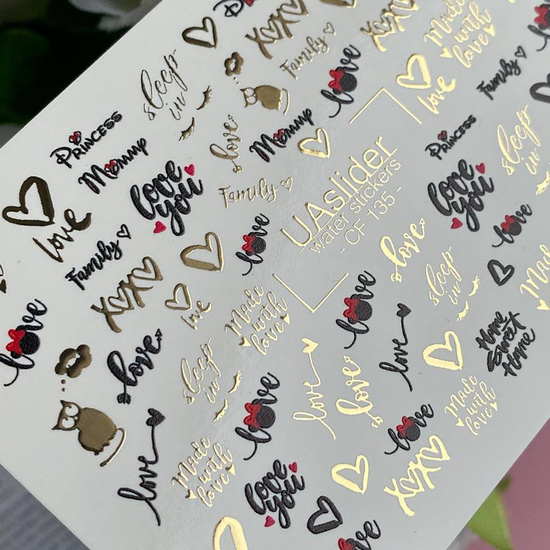 XOXO
Made
with
love
sleep
in
Family
love
PRINCESS
Mommy
love
Mommy
love
Family
PRINCESS
sleep
in
love
you
Family
UAslider
water stickers
CF 135 -
love
you
love
Family
love
love
XOXO
love
Made
with
love
sleep
in
love
love
love
sleep
in
love
love
love
love
Home
Sweet
Home
love
Made
with
love
love
love
Made
with
love
XOXO
love
you